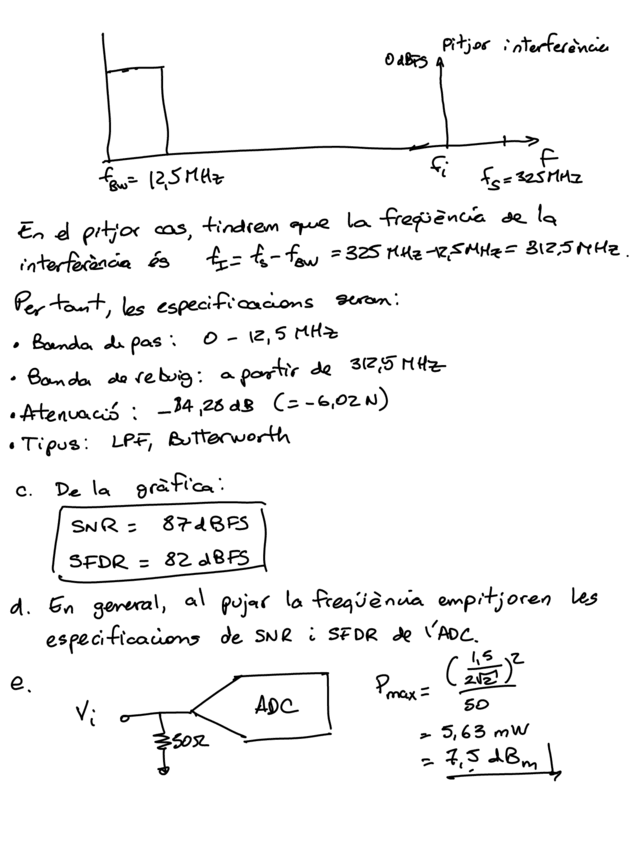 Pitjor interferència
0 dBFS
f_BW = 12,5 MHz
f_i
f
f_s = 325 MHz
En el pitjor cas, tindrem que la freqüència de la
interferència és f_I = f_s - f_BW = 325 MHz - 12,5 MHz = 312,5 MHz.
Per tant, les especificacions seran:
• Banda de pas: 0 - 12,5 MHz
• Banda de rebuig: a partir de 312,5 MHz
• Atenuació: -84,28 dB (= -6,02 N)
• Tipus: LPF, Butterworth
c. De la gràfica:
SNR = 87 dBFS
SFDR = 82 dBFS
d. En general, al pujar la freqüència empitjoren les
especificacions de SNR i SFDR de l'ADC.
e.
V_i
ADC
50Ω
P_max = (1,5 / 2√2)² / 50
= 5,63 mW
= 7,5 dBm